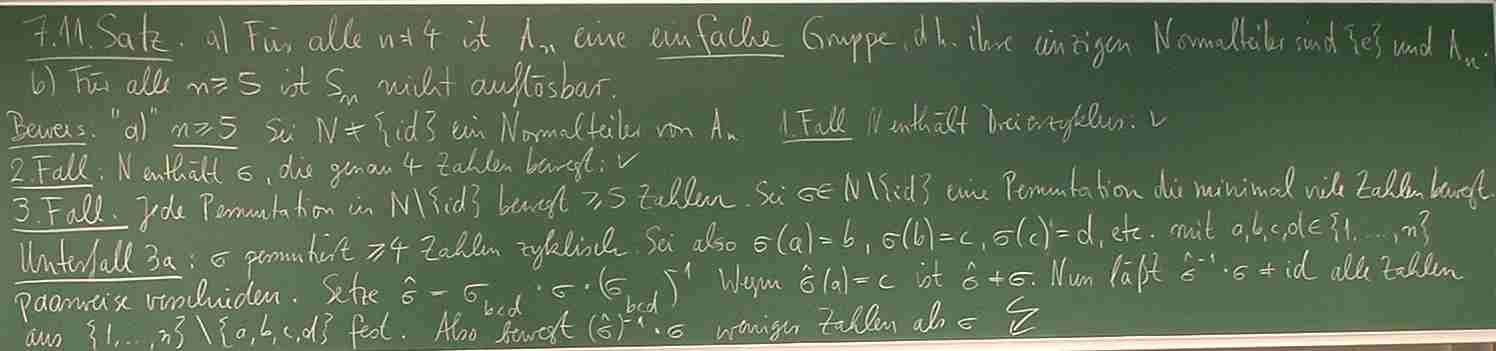 7.11. Satz. a) Für alle n≠4 ist Aₙ eine einfache Gruppe, d.h. ihre einzigen Normalteiler sind {e} und Aₙ.
b) Für alle n≥5 ist Sₙ nicht auflösbar.
Beweis. "a)" n≥5 Sei N≠{id} ein Normalteiler von Aₙ 1.Fall N enthält Dreierzyklus: ✓
2.Fall: N enthält σ, die genau 4 Zahlen bewegt: ✓
3.Fall. Jede Permutation in N\{id} bewegt ≥5 Zahlen. Sei σ∈N\{id} eine Permutation die minimal viele Zahlen bewegt.
Unterfall 3a: σ permutiert ≥4 Zahlen zyklisch. Sei also σ(a)=b, σ(b)=c, σ(c)=d, etc. mit a,b,c,d∈{1,...,n}
paarweise verschieden. Setze σ̂ = σ_bcd · σ · (σ_bcd)⁻¹ Wegen σ̂(a)=c ist σ̂≠σ. Nun läßt σ̂⁻¹·σ≠id alle Zahlen
aus {1,...,n}\{a,b,c,d} fest. Also bewegt (σ̂)⁻¹·σ weniger Zahlen als σ